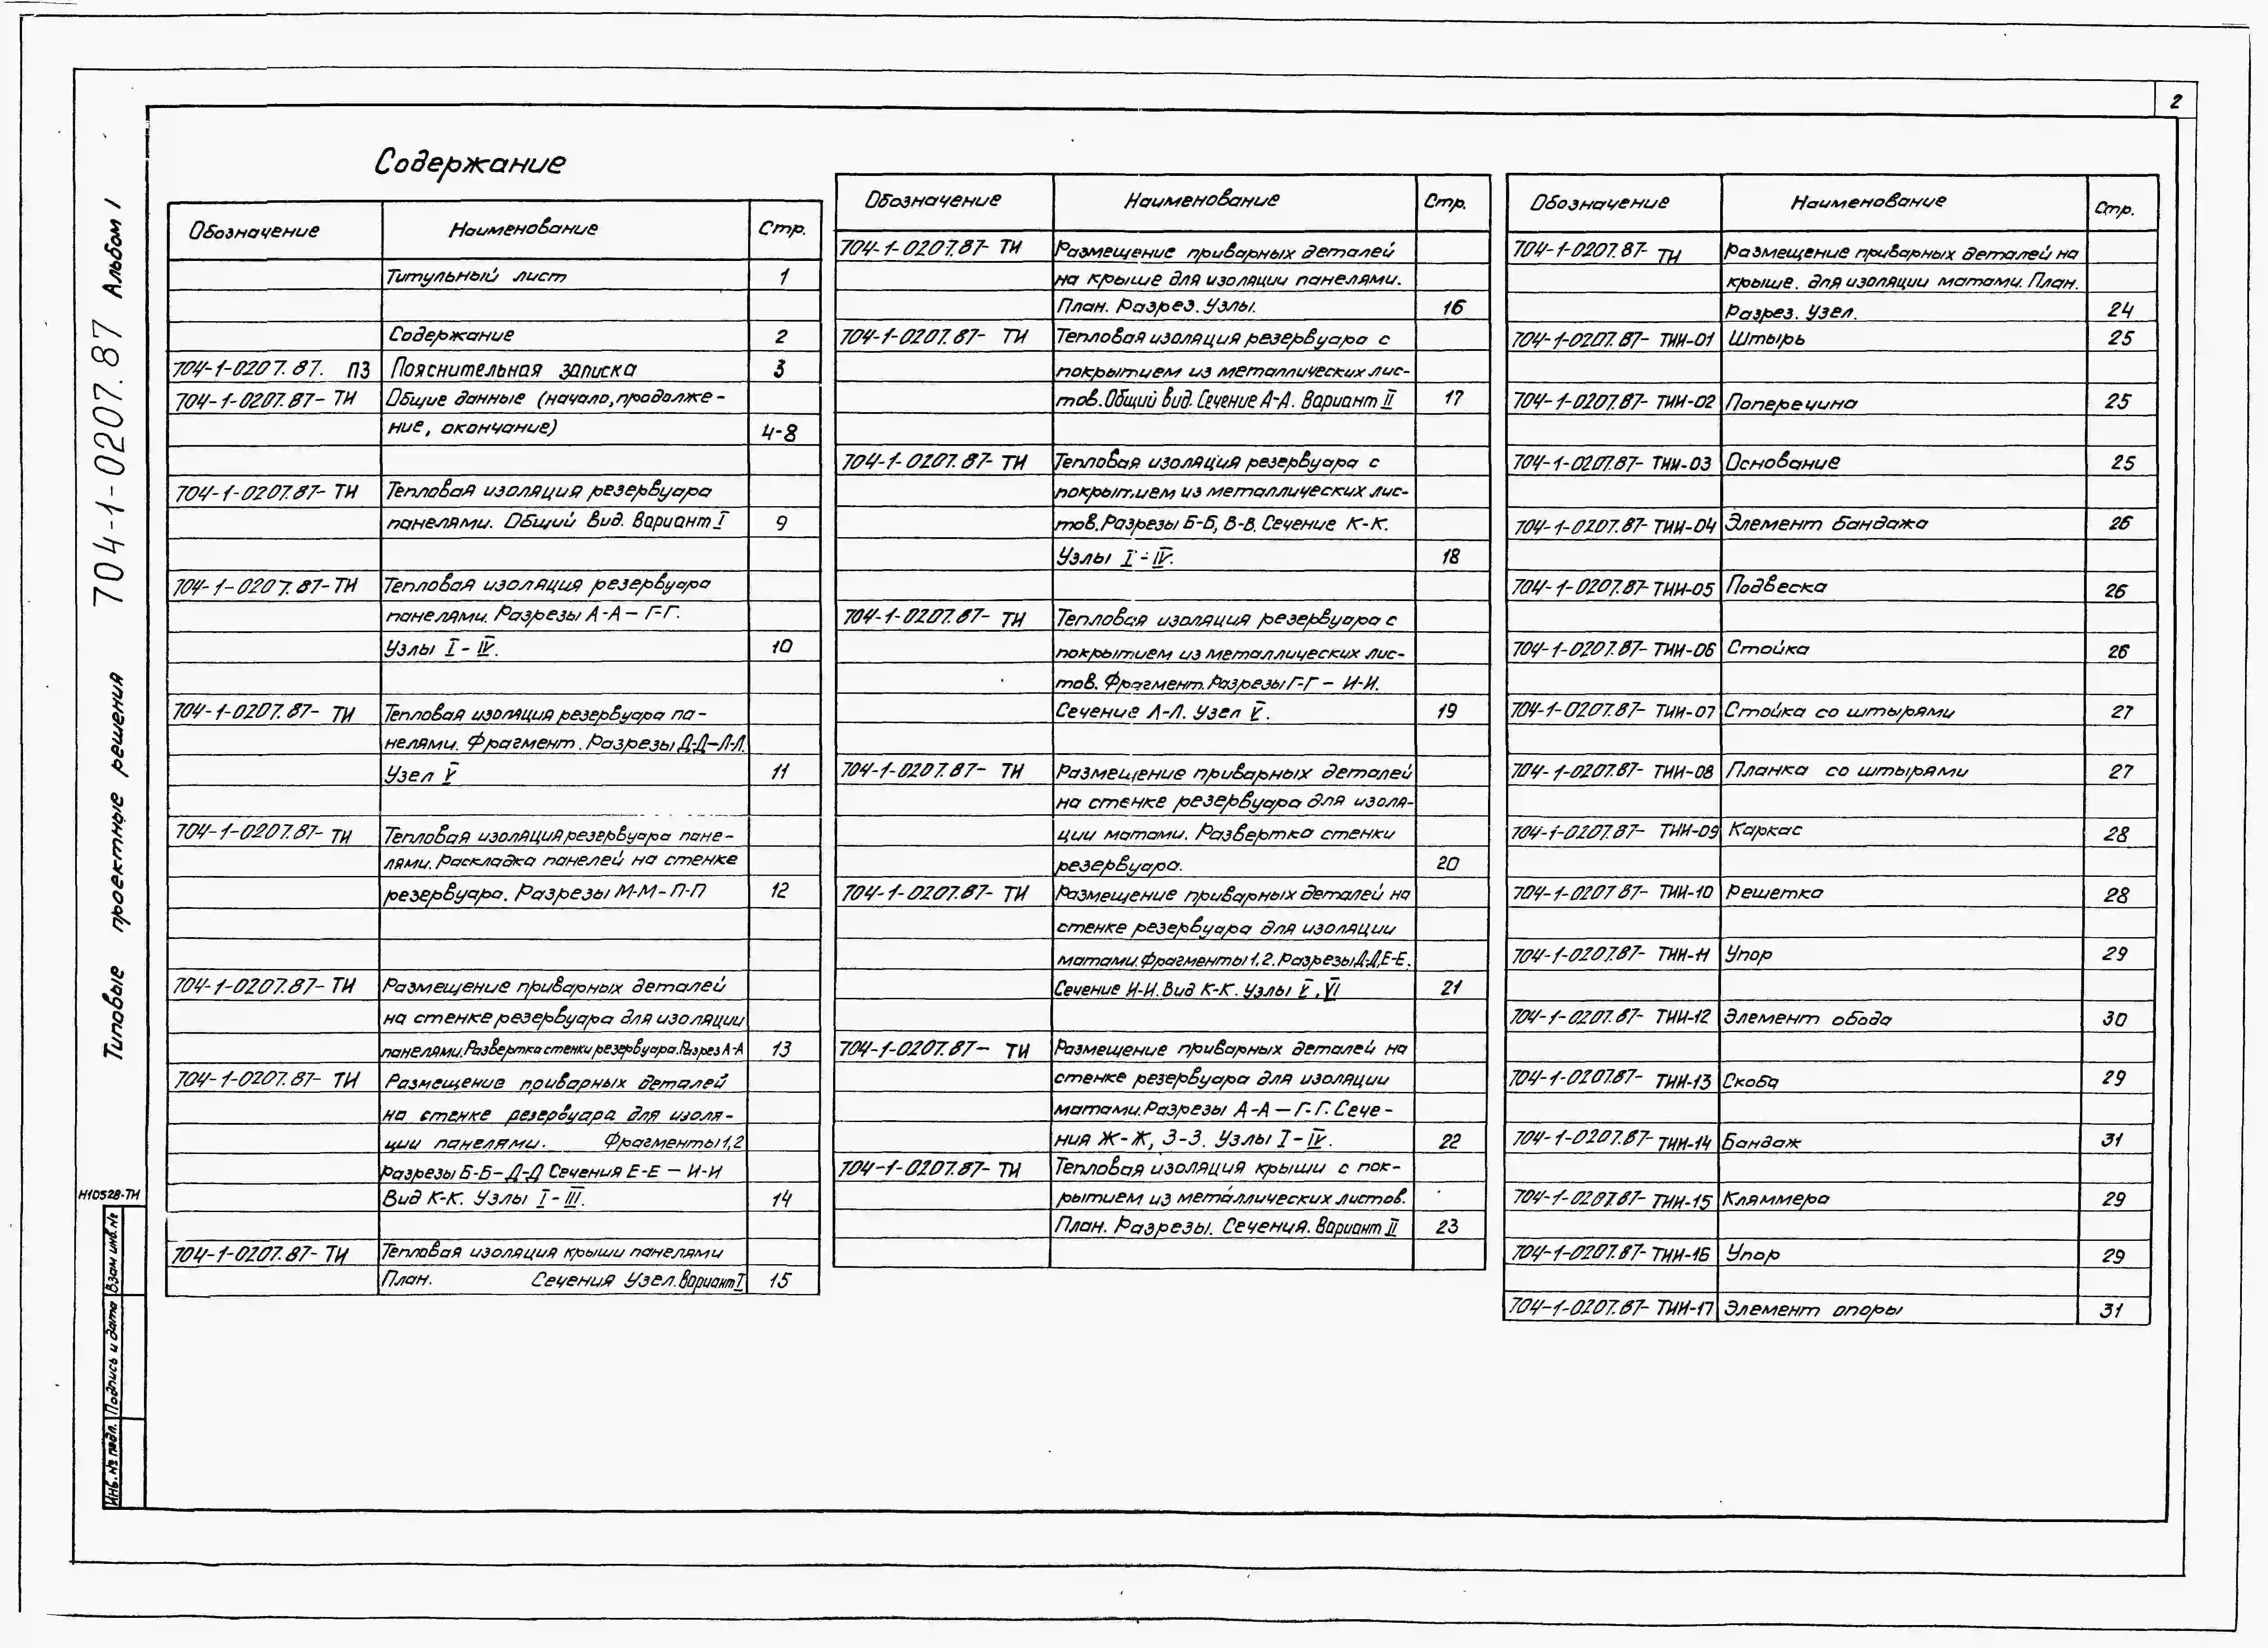 2
Типовые проектные решения 704-1-0207.87 Альбом 1
Содержание
Обозначение Наименование Стр.
Титульный лист 1
Содержание 2
704-1-0207.87. ПЗ Пояснительная записка 3
704-1-0207.87- ТИ Общие данные (начало, продолже-
ние, окончание) 4-8
704-1-0207.87- ТИ Тепловая изоляция резервуара
панелями. Общий вид. Вариант I 9
704-1-0207.87- ТИ Тепловая изоляция резервуара
панелями. Разрезы А-А – Г-Г.
Узлы I - IV. 10
704-1-0207.87- ТИ Тепловая изоляция резервуара па-
нелями. Фрагмент. Разрезы Д-Д–Л-Л.
Узел V 11
704-1-0207.87- ТИ Тепловая изоляция резервуара пане-
лями. Раскладка панелей на стенке
резервуара. Разрезы М-М - П-П 12
704-1-0207.87- ТИ Размещение приварных деталей
на стенке резервуара для изоляции
панелями. Развертка стенки резервуара. Разрез А-А 13
704-1-0207.87- ТИ Размещение приварных деталей
на стенке резервуара для изоля-
ции панелями. Фрагменты 1,2
Разрезы Б-Б – Д-Д Сечения Е-Е – И-И
Вид К-К. Узлы I - III. 14
704-1-0207.87- ТИ Тепловая изоляция крыши панелями
План. Сечения Узел. Вариант I 15
Обозначение Наименование Стр.
704-1-0207.87- ТИ Размещение приварных деталей
на крыше для изоляции панелями.
План. Разрез. Узлы. 16
704-1-0207.87- ТИ Тепловая изоляция резервуара с
покрытием из металлических лис-
тов. Общий вид. Сечение А-А. Вариант II 17
704-1-0207.87- ТИ Тепловая изоляция резервуара с
покрытием из металлических лис-
тов. Разрезы Б-Б, В-В. Сечение К-К.
Узлы I - IV. 18
704-1-0207.87- ТИ Тепловая изоляция резервуара с
покрытием из металлических лис-
тов. Фрагмент. Разрезы Г-Г – И-И.
Сечение Л-Л. Узел V. 19
704-1-0207.87- ТИ Размещение приварных деталей
на стенке резервуара для изоля-
ции матами. Развертка стенки
резервуара. 20
704-1-0207.87- ТИ Размещение приварных деталей на
стенке резервуара для изоляции
матами. Фрагменты 1,2. Разрезы Д-Д, Е-Е.
Сечение И-И. Вид К-К. Узлы V, VI 21
704-1-0207.87- ТИ Размещение приварных деталей на
стенке резервуара для изоляции
матами. Разрезы А-А – Г-Г. Сече-
ния Ж-Ж, З-З. Узлы I - IV. 22
704-1-0207.87- ТИ Тепловая изоляция крыши с пок-
рытием из металлических листов.
План. Разрезы. Сечения. Вариант II 23
Обозначение Наименование Стр.
704-1-0207.87- ТИ Размещение приварных деталей на
крыше. для изоляции матами. План.
Разрез. Узел. 24
704-1-0207.87- ТИИ-01 Штырь 25
704-1-0207.87- ТИИ-02 Поперечина 25
704-1-0207.87- ТИИ-03 Основание 25
704-1-0207.87- ТИИ-04 Элемент бандажа 26
704-1-0207.87- ТИИ-05 Подвеска 26
704-1-0207.87- ТИИ-06 Стойка 26
704-1-0207.87- ТИИ-07 Стойка со штырями 27
704-1-0207.87- ТИИ-08 Планка со штырями 27
704-1-0207.87- ТИИ-09 Каркас 28
704-1-0207.87- ТИИ-10 Решетка 28
704-1-0207.87- ТИИ-11 Упор 29
704-1-0207.87- ТИИ-12 Элемент обода 30
704-1-0207.87- ТИИ-13 Скоба 29
704-1-0207.87- ТИИ-14 Бандаж 31
704-1-0207.87- ТИИ-15 Кляммера 29
704-1-0207.87- ТИИ-16 Упор 29
704-1-0207.87- ТИИ-17 Элемент опоры 31
Н10528-ТИ
Инв. № подл. Подпись и дата Взам инв. №